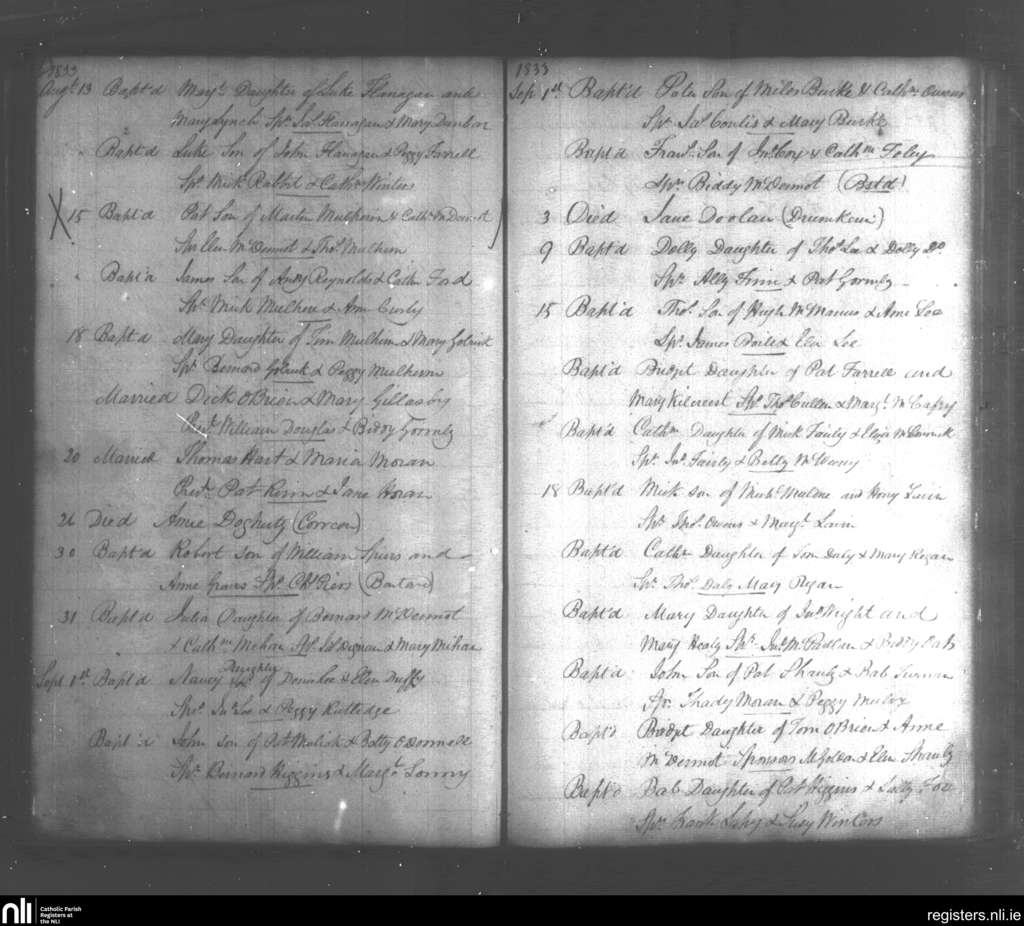 1833
Augt 13 Bapt'd Margt. Daughter of Luke Flanagan and
Mary Lynch Spr. Jas. Flanagan & Mary Danlon
Bapt'd Luke Son of John Flanagan & Peggy Farrell
Spr. Mick Rabbit & Cathn. Winters
X 15 Bapt'd Pat Son of Martin Mulhern & Cathn. McDermot
Spr. Ellen McDermot & Thos. Mulhern
Bapt'd James Son of Andy Reynolds & Cathn Ford
Spr. Mick Mulhern & Ann Crosby
18 Bapt'd Mary Daughter of Tim Mulhern & Mary Golrick
Spr. Bernard Golrick & Peggy Mulhern
Married Dick O'Brien & Mary Gillasby
William Douglas & Biddy Gormly
20 Married Thomas Hart & Maria Moran
Pat Kenn & Jane Horan
26 Died Anne Dogherty (Correen)
30 Bapt'd Robert Son of William Spiers and
Anne Grairs Spr. (Bastard)
31 Bapt'd Julia Daughter of Bernard McDermot
& Cathne. Mehan Spr. Jas. Dignan & Mary Mehan
Sept 1st. Bapt'd Nancy Daughter of Denis Lee & Ellen Duffy
Spr. Jno. Lee & Peggy Rutledge
Bapt'd John Son of Pat Mulick & Betty O'Donnell
Spr. Bernard Higgins & Margt. Lonny
1833
Sep 1st. Bapt'd Pat Son of Miles Burke & Cathn. Owens
Spr. Jas. Coulis & Mary Burke
Bapt'd Frans. Son of Jno. Coy & Cathne Foley
Spr. Biddy McDermot (Bstd)
3 Died Jane Doolan (Drumkeen)
9 Bapt'd Dolly Daughter of Thos. Lee & Dolly Do.
Spr. Ally Finn & Pat Gormly
15 Bapt'd Thos. Son of Hugh McManus & Anne Lee
Spr. James & Ellen Lee
Bapt'd Bridget Daughter of Pat Farrell and
Mary Kilcrest Spr. Thos. Cullen & Margt. McCafry
Bapt'd Cathn Daughter of Mick Fairly & Eliza McCormick
Spr. Jno. Fairly & Betty
18 Bapt'd Mick Son of Michl. Muldne and Hony Lavin
Spr. Thos. Owens & Margt. Lavin
Bapt'd Cathn Daughter of Tom Daly & Mary Regan
Spr. Thos. Daly Mary Regan
Bapt'd Mary Daughter of Jno. Wright and
Mary Healy Spr. Jno. McPadlan & Biddy
Bapt'd John Son of Pat Shanly & Bab
Spr. Thady Moran & Peggy Mulvy
Bapt'd Bridget Daughter of Tom O'Brien & Anne
McDermot Sponsors M. Golden & Ellen Shanly
Bapt'd Bab Daughter of Pat Higgins & Sally Fox
Spr. & Susy Winters
nli
Catholic Parish
Registers at
the NLI
registers.nli.ie